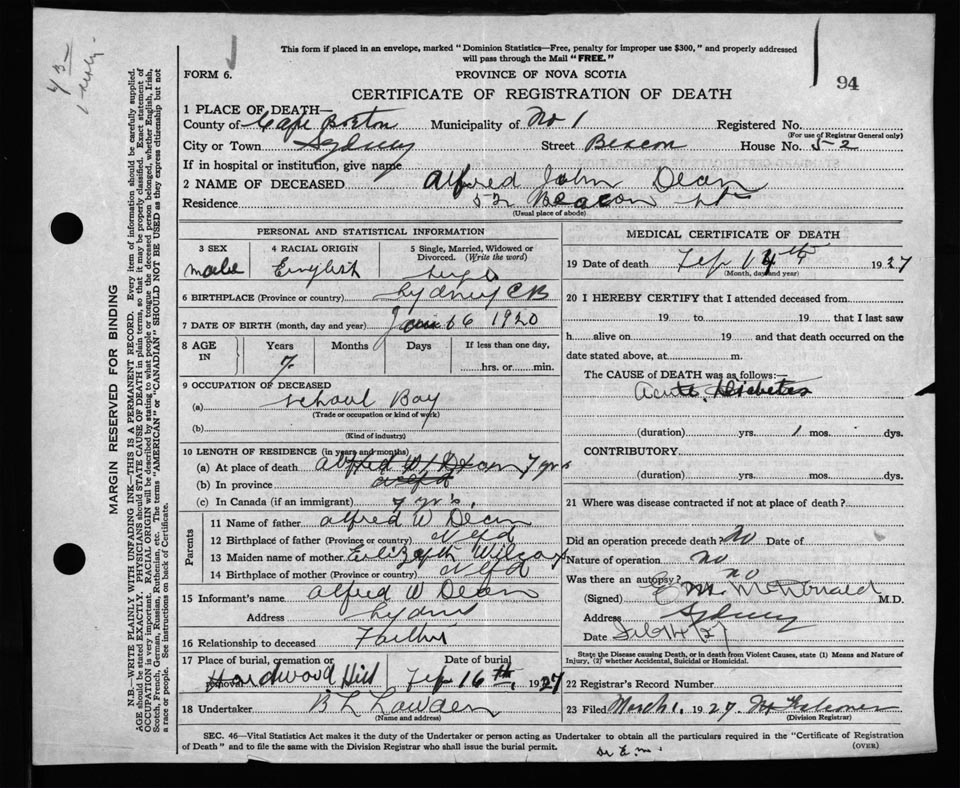 This form if placed in an envelope, marked "Dominion Statistics—Free, penalty for improper use $300," and properly addressed
will pass through the Mail "FREE."
FORM 6.
PROVINCE OF NOVA SCOTIA
94
CERTIFICATE OF REGISTRATION OF DEATH
1 PLACE OF DEATH—
County of Cape Breton Municipality of No 1 Registered No.
(For use of Registrar General only)
City or Town Sydney Street Beacon House No. 52
If in hospital or institution, give name
2 NAME OF DECEASED Alfred John Dean
Residence 52 Beacon St
(Usual place of abode)
PERSONAL AND STATISTICAL INFORMATION
3 SEX 4 RACIAL ORIGIN 5 Single, Married, Widowed or Divorced. (Write the word)
male English Single
6 BIRTHPLACE (Province or country) Sydney CB
7 DATE OF BIRTH (month, day and year) 6 1920
8 AGE IN Years Months Days If less than one day,
7 hrs. or min.
9 OCCUPATION OF DECEASED
(a) School Boy
(Trade or occupation or kind of work)
(b)
(Kind of industry)
10 LENGTH OF RESIDENCE (in years and months)
(a) At place of death Alfred W Dean 7 yrs
(b) In province
(c) In Canada (if an immigrant) 7 yrs
Parents
11 Name of father Alfred W Dean
12 Birthplace of father (Province or country) Nfld
13 Maiden name of mother Elizabeth Wilcox
14 Birthplace of mother (Province or country) Nfld
15 Informant's name Alfred W Dean
Address Sydney
16 Relationship to deceased Father
17 Place of burial, cremation or removal Date of burial
Hardwood Hill Feb 16th, 1927
18 Undertaker B L Lowden
(Name and address)
MEDICAL CERTIFICATE OF DEATH
19 Date of death Feb 14th 1927
(Month, day and year)
20 I HEREBY CERTIFY that I attended deceased from
19 to 19 that I last saw
h alive on 19 and that death occurred on the
date stated above, at m.
The CAUSE of DEATH was as follows:—
Acute Diabetes
(duration) yrs. 1 mos. dys.
CONTRIBUTORY
(duration) yrs. mos. dys.
21 Where was disease contracted if not at place of death?
Did an operation precede death? No Date of
Nature of operation no
Was there an autopsy? no
(Signed) McDonald M.D.
Address Sydney
Date Feb 14/27
State the Disease causing Death, or in death from Violent Causes, state (1) Means and Nature of
Injury, (2) whether Accidental, Suicidal or Homicidal.
22 Registrar's Record Number
23 Filed March 1, 1927.
(Division Registrar)
SEC. 46—Vital Statistics Act makes it the duty of the Undertaker or person acting as Undertaker to obtain all the particulars required in the "Certificate of Registration
of Death" and to file the same with the Division Registrar who shall issue the burial permit.
(OVER)
MARGIN RESERVED FOR BINDING
N.B.—WRITE PLAINLY WITH UNFADING INK—THIS IS A PERMANENT RECORD. Every item of information should be carefully supplied.
AGE should be stated EXACTLY. PHYSICIANS should STATE CAUSE OF DEATH in plain terms, so that it may be properly classified. Exact statement of
OCCUPATION is very important. RACIAL ORIGIN will be described by stating to what people or tongue the deceased person belonged, whether English, Irish,
Scotch, French, German, Russian, Ruthenian, etc. The terms "AMERICAN" or "CANADIAN" SHOULD NOT BE USED as they express citizenship but not
a race or people. See instructions on back of Certificate.